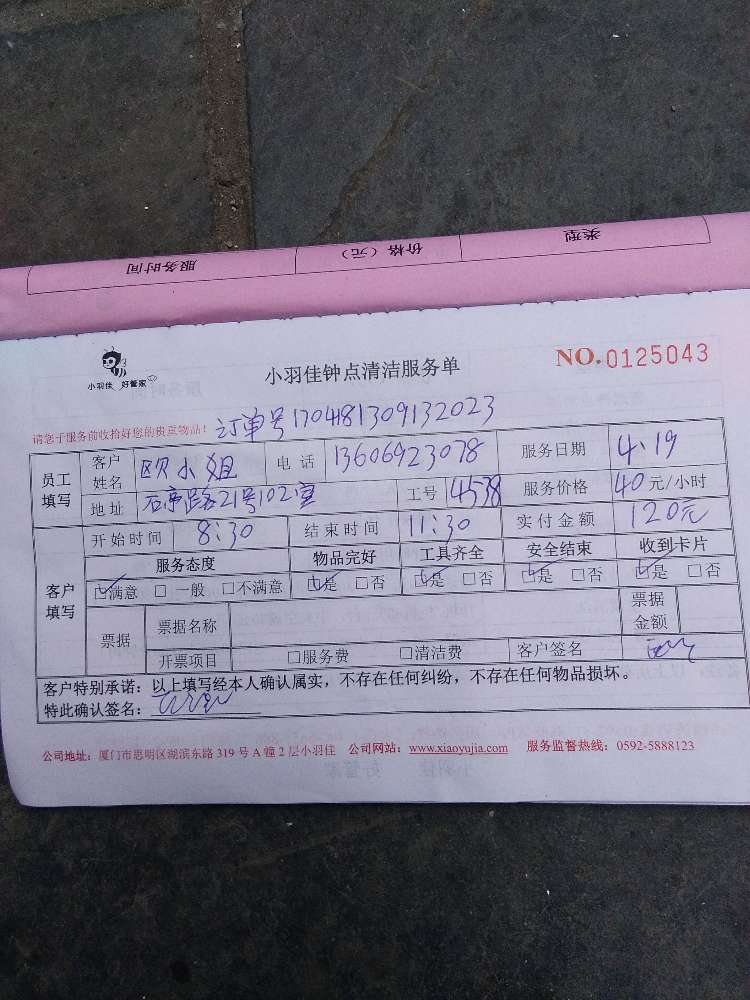 类型 价格（元） 服务时间
小羽佳 好管家
小羽佳钟点清洁服务单
NO.0125043
请您于服务前收拾好您的贵重物品！ 订单号1704181309132023
员工填写 客户姓名 欧小姐 电话 13606923078 服务日期 4.19
地址 石亭路21号102室 工号 4538 服务价格 40元/小时
客户填写 开始时间 8:30 结束时间 11:30 实付金额 120元
服务态度 物品完好 工具齐全 安全结束 收到卡片
☑满意 □一般 □不满意 ☑是 □否 ☑是 □否 ☑是 □否 ☑是 □否
票据 票据名称 票据金额
开票项目 □服务费 □清洁费 客户签名
客户特别承诺：以上填写经本人确认属实，不存在任何纠纷，不存在任何物品损坏。
特此确认签名：
公司地址：厦门市思明区湖滨东路 319 号 A 幢 2 层小羽佳 公司网站：www.xiaoyujia.com 服务监督热线：0592-5888123